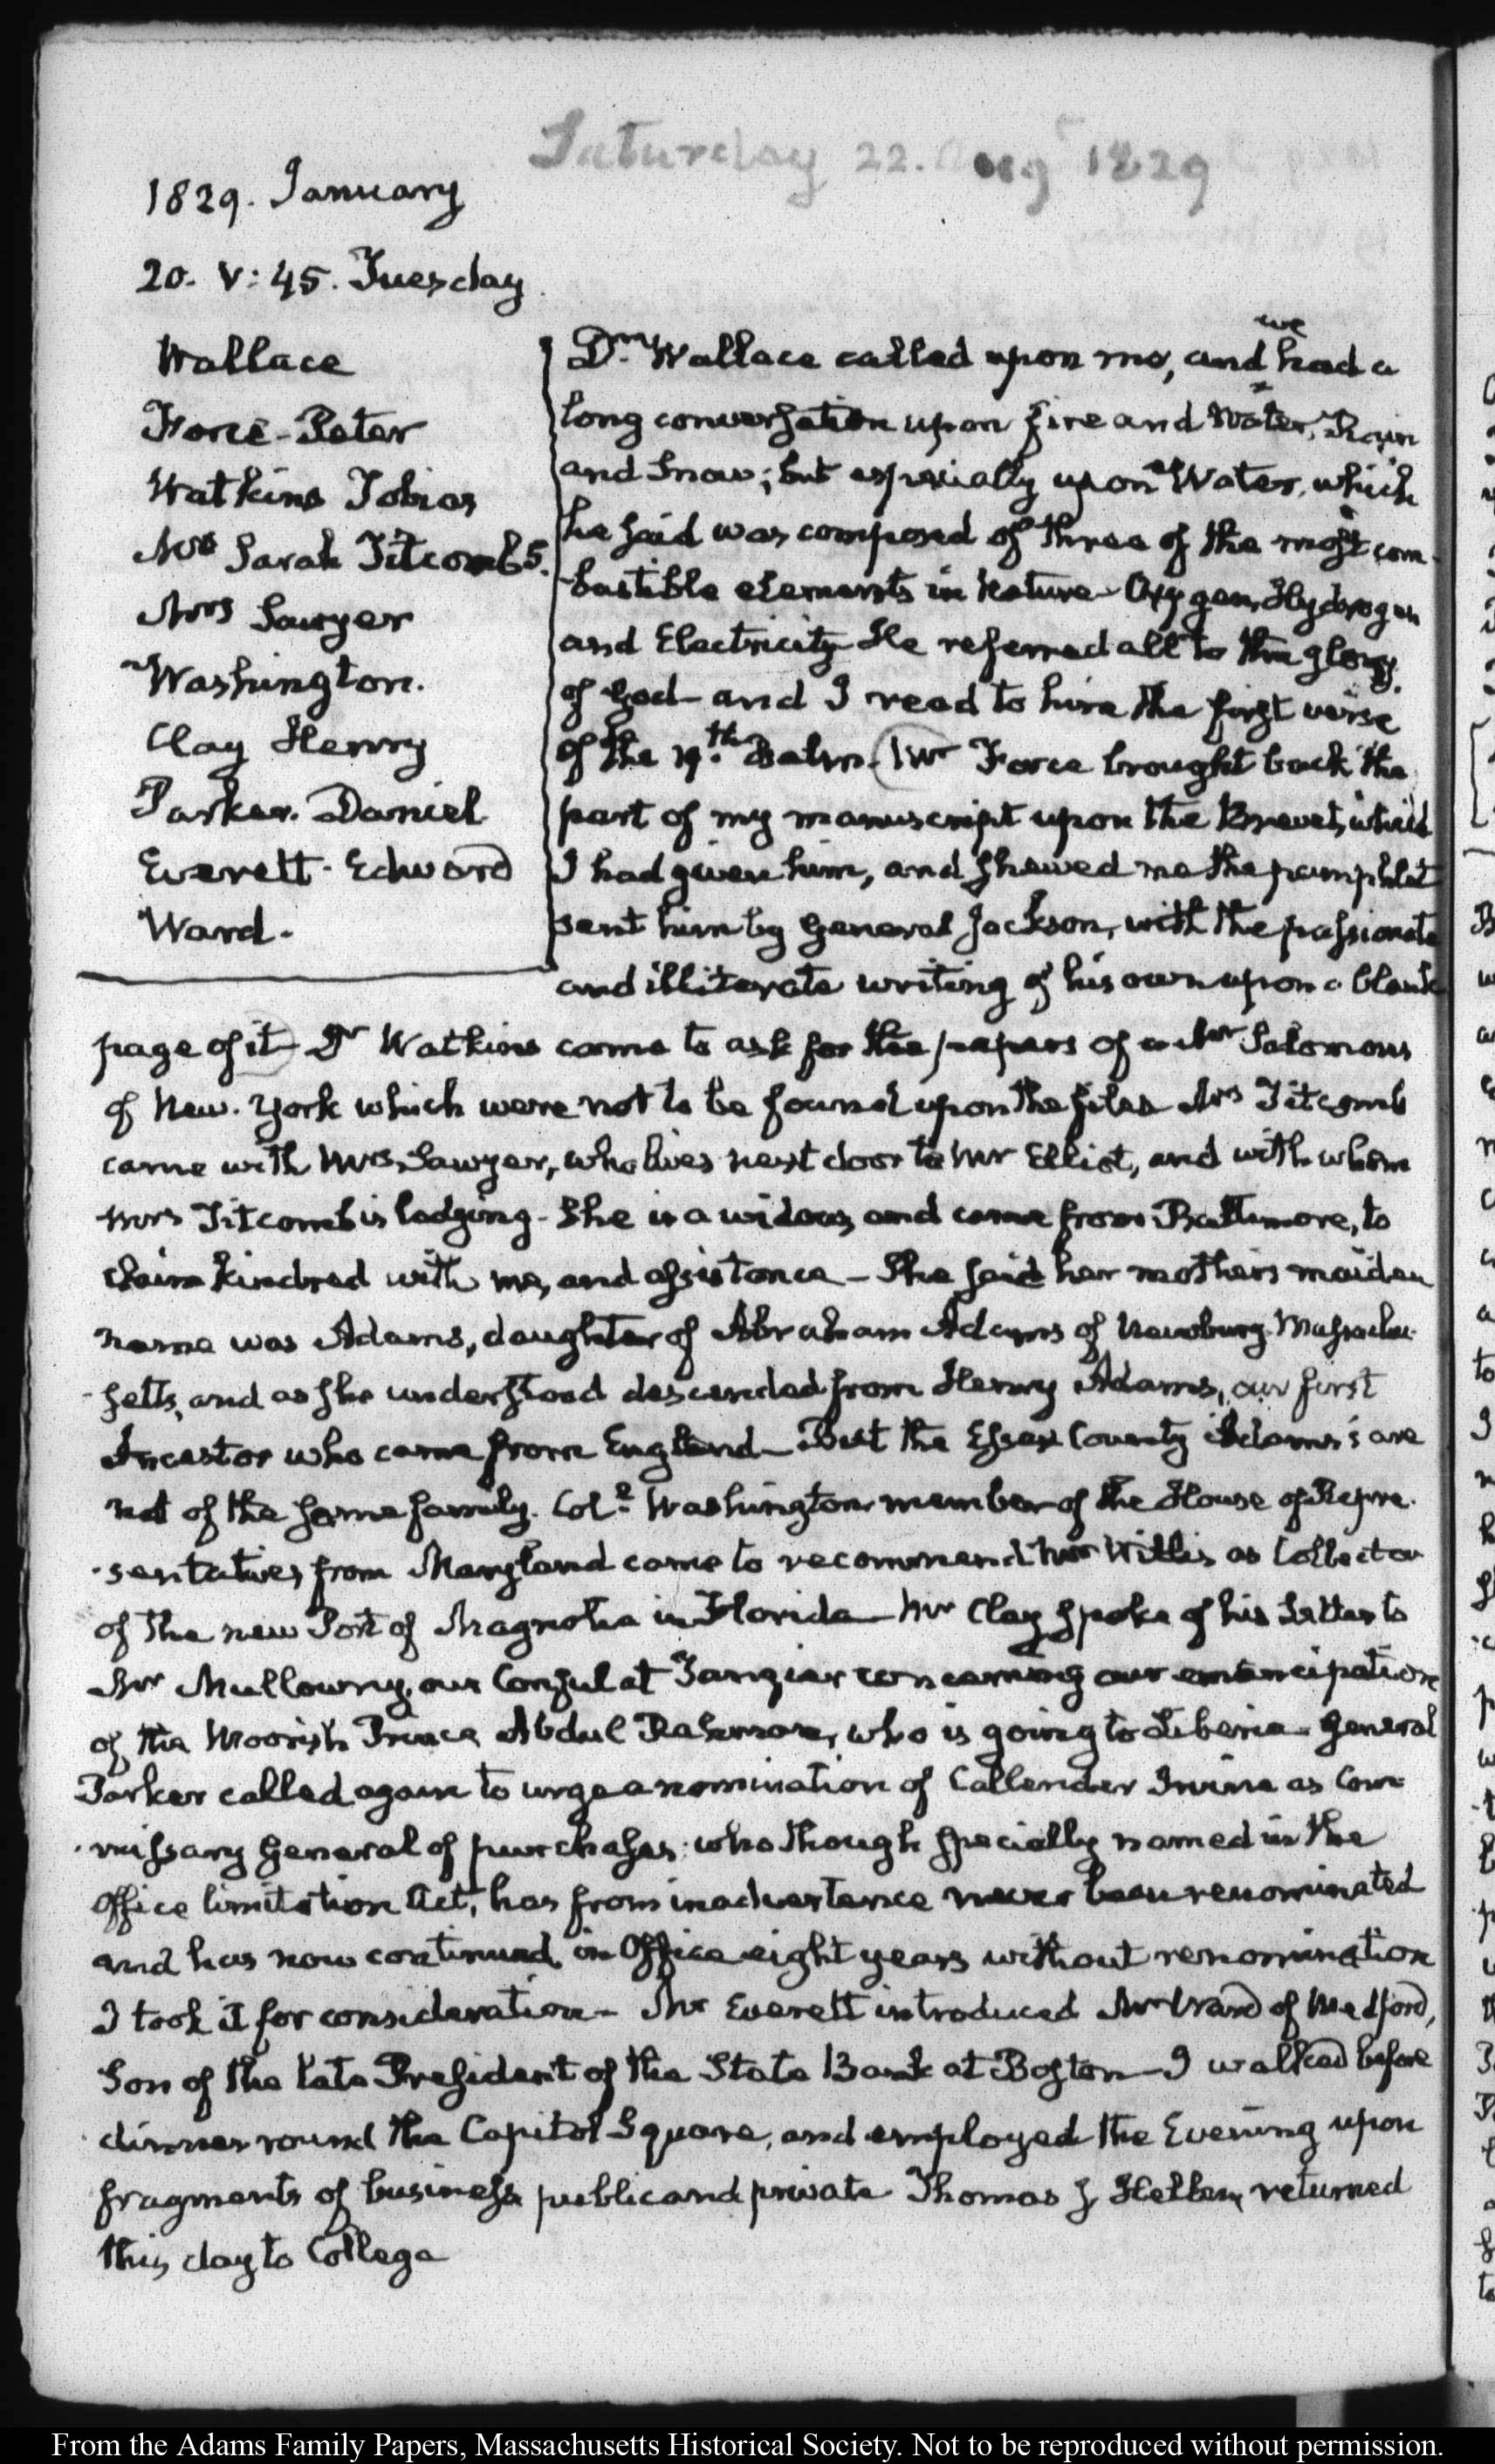 Saturday 22. Aug 1829
1829. January
20. V: 45. Tuesday.
Wallace
Force-Peter
Watkins Tobias
Mrs Sarah Titcomb 5.
Mrs Sawyer
Washington.
Clay Henry
Parker. Daniel
Everett. Edward
Ward.
Dr. Wallace called upon me, and we had a
long conversation upon fire and Water, Rain
and Snow; but especially upon Water, which
he said was composed of three of the most com-
bustible elements in Nature- Oxygen, Hydrogen
and Electricity He referred all to the glory
of God- and I read to him the first verse
of the 19.th Psalm. Mr Force brought back the
part of my manuscript upon the Brevets, which
I had given him, and shewed me the pamphlet
sent him by General Jackson, with the passionate
and illiterate writing of his own upon a blank
page of it- Dr Watkins came to ask for the papers of a Mr Salomons
of New. York which were not to be found upon the files Mrs Titcomb
came with Mrs Sawyer, who lives next door to Mr Elliot, and with whom
Mrs Titcomb is lodging- She is a widow, and came from Baltimore, to
claim kindred with me, and assistance- She said her mother's maiden
name was Adams, daughter of Abraham Adams of Newburg. Massachu-
-setts, and as she understood descended from Henry Adams, our first
Ancestor who came from England- But the Essex County Adams's are
not of the same family. Coll. Washington member of the House of Repre.
-sentatives from Maryland came to recommend Mr Willis as Collector
of the new Port of Magnolia in Florida- Mr Clay spoke of his Letter to
Mr Mullowny, our Consul at Tangier concerning our emancipation
of the Moorish Prince Abdul Rahaman, who is going to Liberia- General
Parker called again to urge a nomination of Callender Irvine as Com-
-missary General of purchases; who though specially named in the
Office limitation Act, has from inadvertence never been renominated
and has now continued in Office eight years without renomination
I took it for consideration- Mr Everett introduced Mr Ward of Medford,
Son of the late President of the State Bank at Boston- I walked before
dinner round the Capitol Square, and employed the Evening upon
fragments of business public and private Thomas J Hellen, returned
this day to College
From the Adams Family Papers, Massachusetts Historical Society. Not to be reproduced without permission.